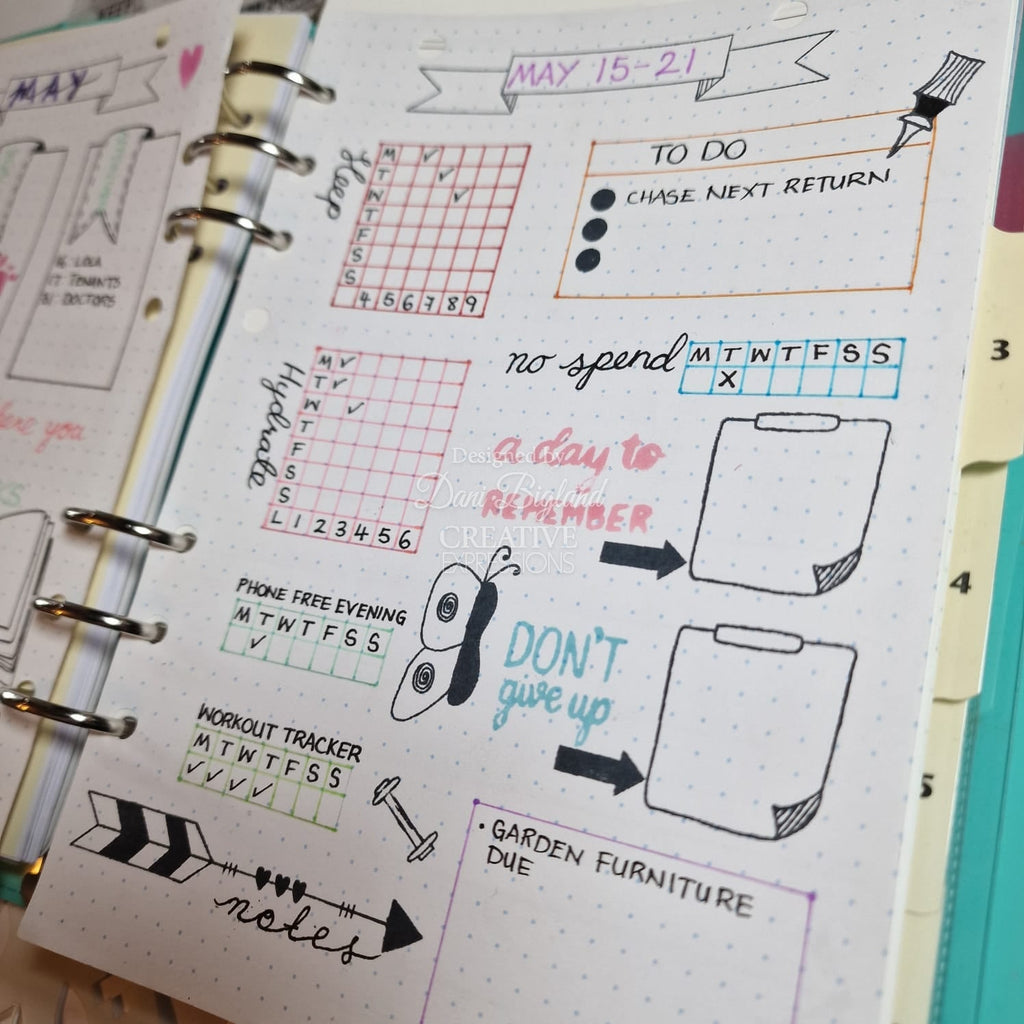 MAY
LOLA
17: TENANTS
DOCTORS
MAY 15-21
Sleep
M ✓
T ✓
W ✓
T
F
S
S
4 5 6 7 8 9
TO DO
CHASE NEXT RETURN
no spend
M T W T F S S
X
Hydrate
M ✓
T ✓
W ✓
T
F
S
S
L 1 2 3 4 5 6
a day to
REMEMBER
Designed by
Dani Bigland
CREATIVE
EXPRESSIONS
PHONE FREE EVENING
M T W T F S S
✓
DON'T
give up
WORKOUT TRACKER
M T W T F S S
✓ ✓ ✓ ✓
notes
• GARDEN FURNITURE
DUE
3
4
5
you